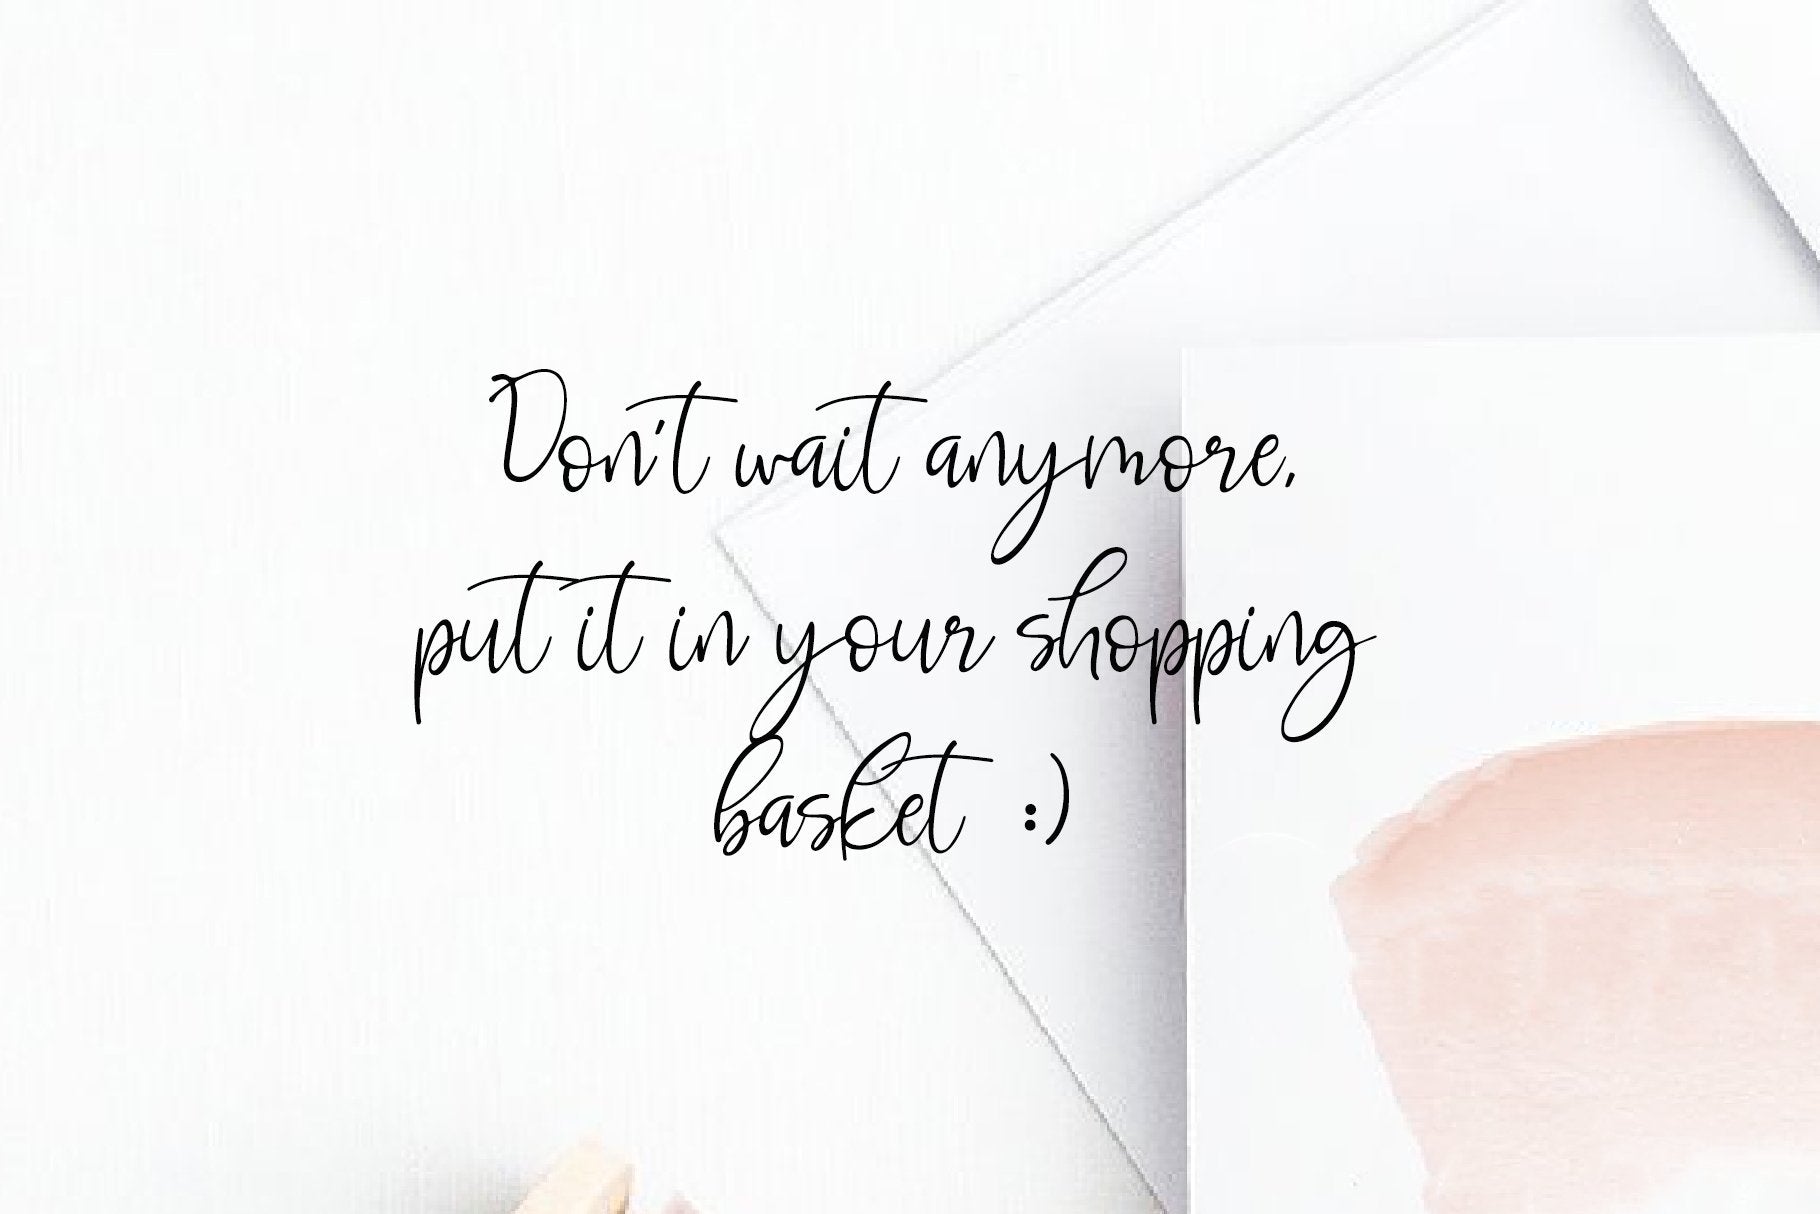 Don't wait anymore,
put it in your shopping
basket :)